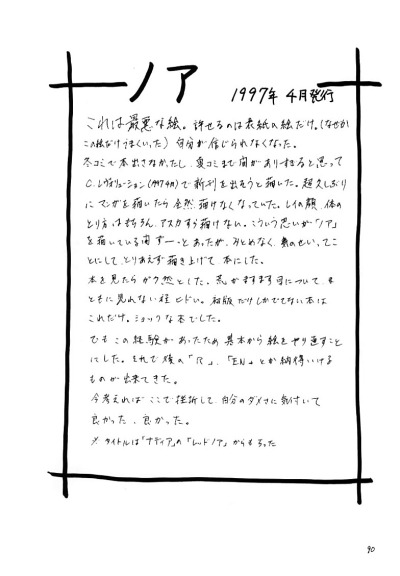 ノア
1997年 4月発行
これは最悪な絵。許せるのは表紙の絵だけ。(なぜか
この絵だけうまくいった) 自分が信じられなくなった。
冬コミで本出さなかったし、夏コミまで間がありすぎると思って
C.レヴォリューション(1997 4月)で新刊を出そうと描いた。超久しぶり
にマンガを描いたら全然描けなくなっていた。レイの顔、体の
とり方はもちろん、アスカすら描けない。こういう思いが「ノア」
を描いている間ずーっとあったが、みとめなく、気のせい、てこ
とにして、とりあえず描き上げて本にした。
本を見たらがく然とした。荒がますます目について、ま
ともに見れない程ヒドい。初版だけしかでてない本は
これだけ。ショックな本でした。
でも この経験があったため 基本から絵をやり直すこと
にした。それで後の「R」、「EN」とか納得いける
ものが出来てきた。
今考えれば ここで挫折して、自分のダメさに気付いて
良かった、良かった。
※ タイトルは「ナディア」の「レッドノア」からもらった
90